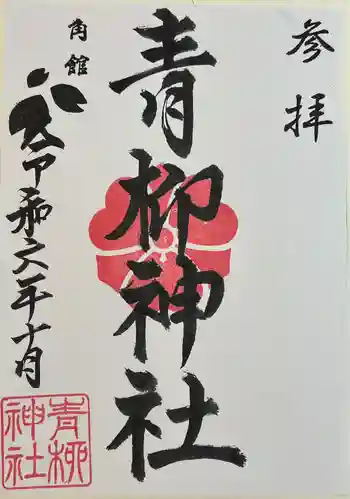 参拝
青柳神社
角館
令和六年十月
青柳
神社